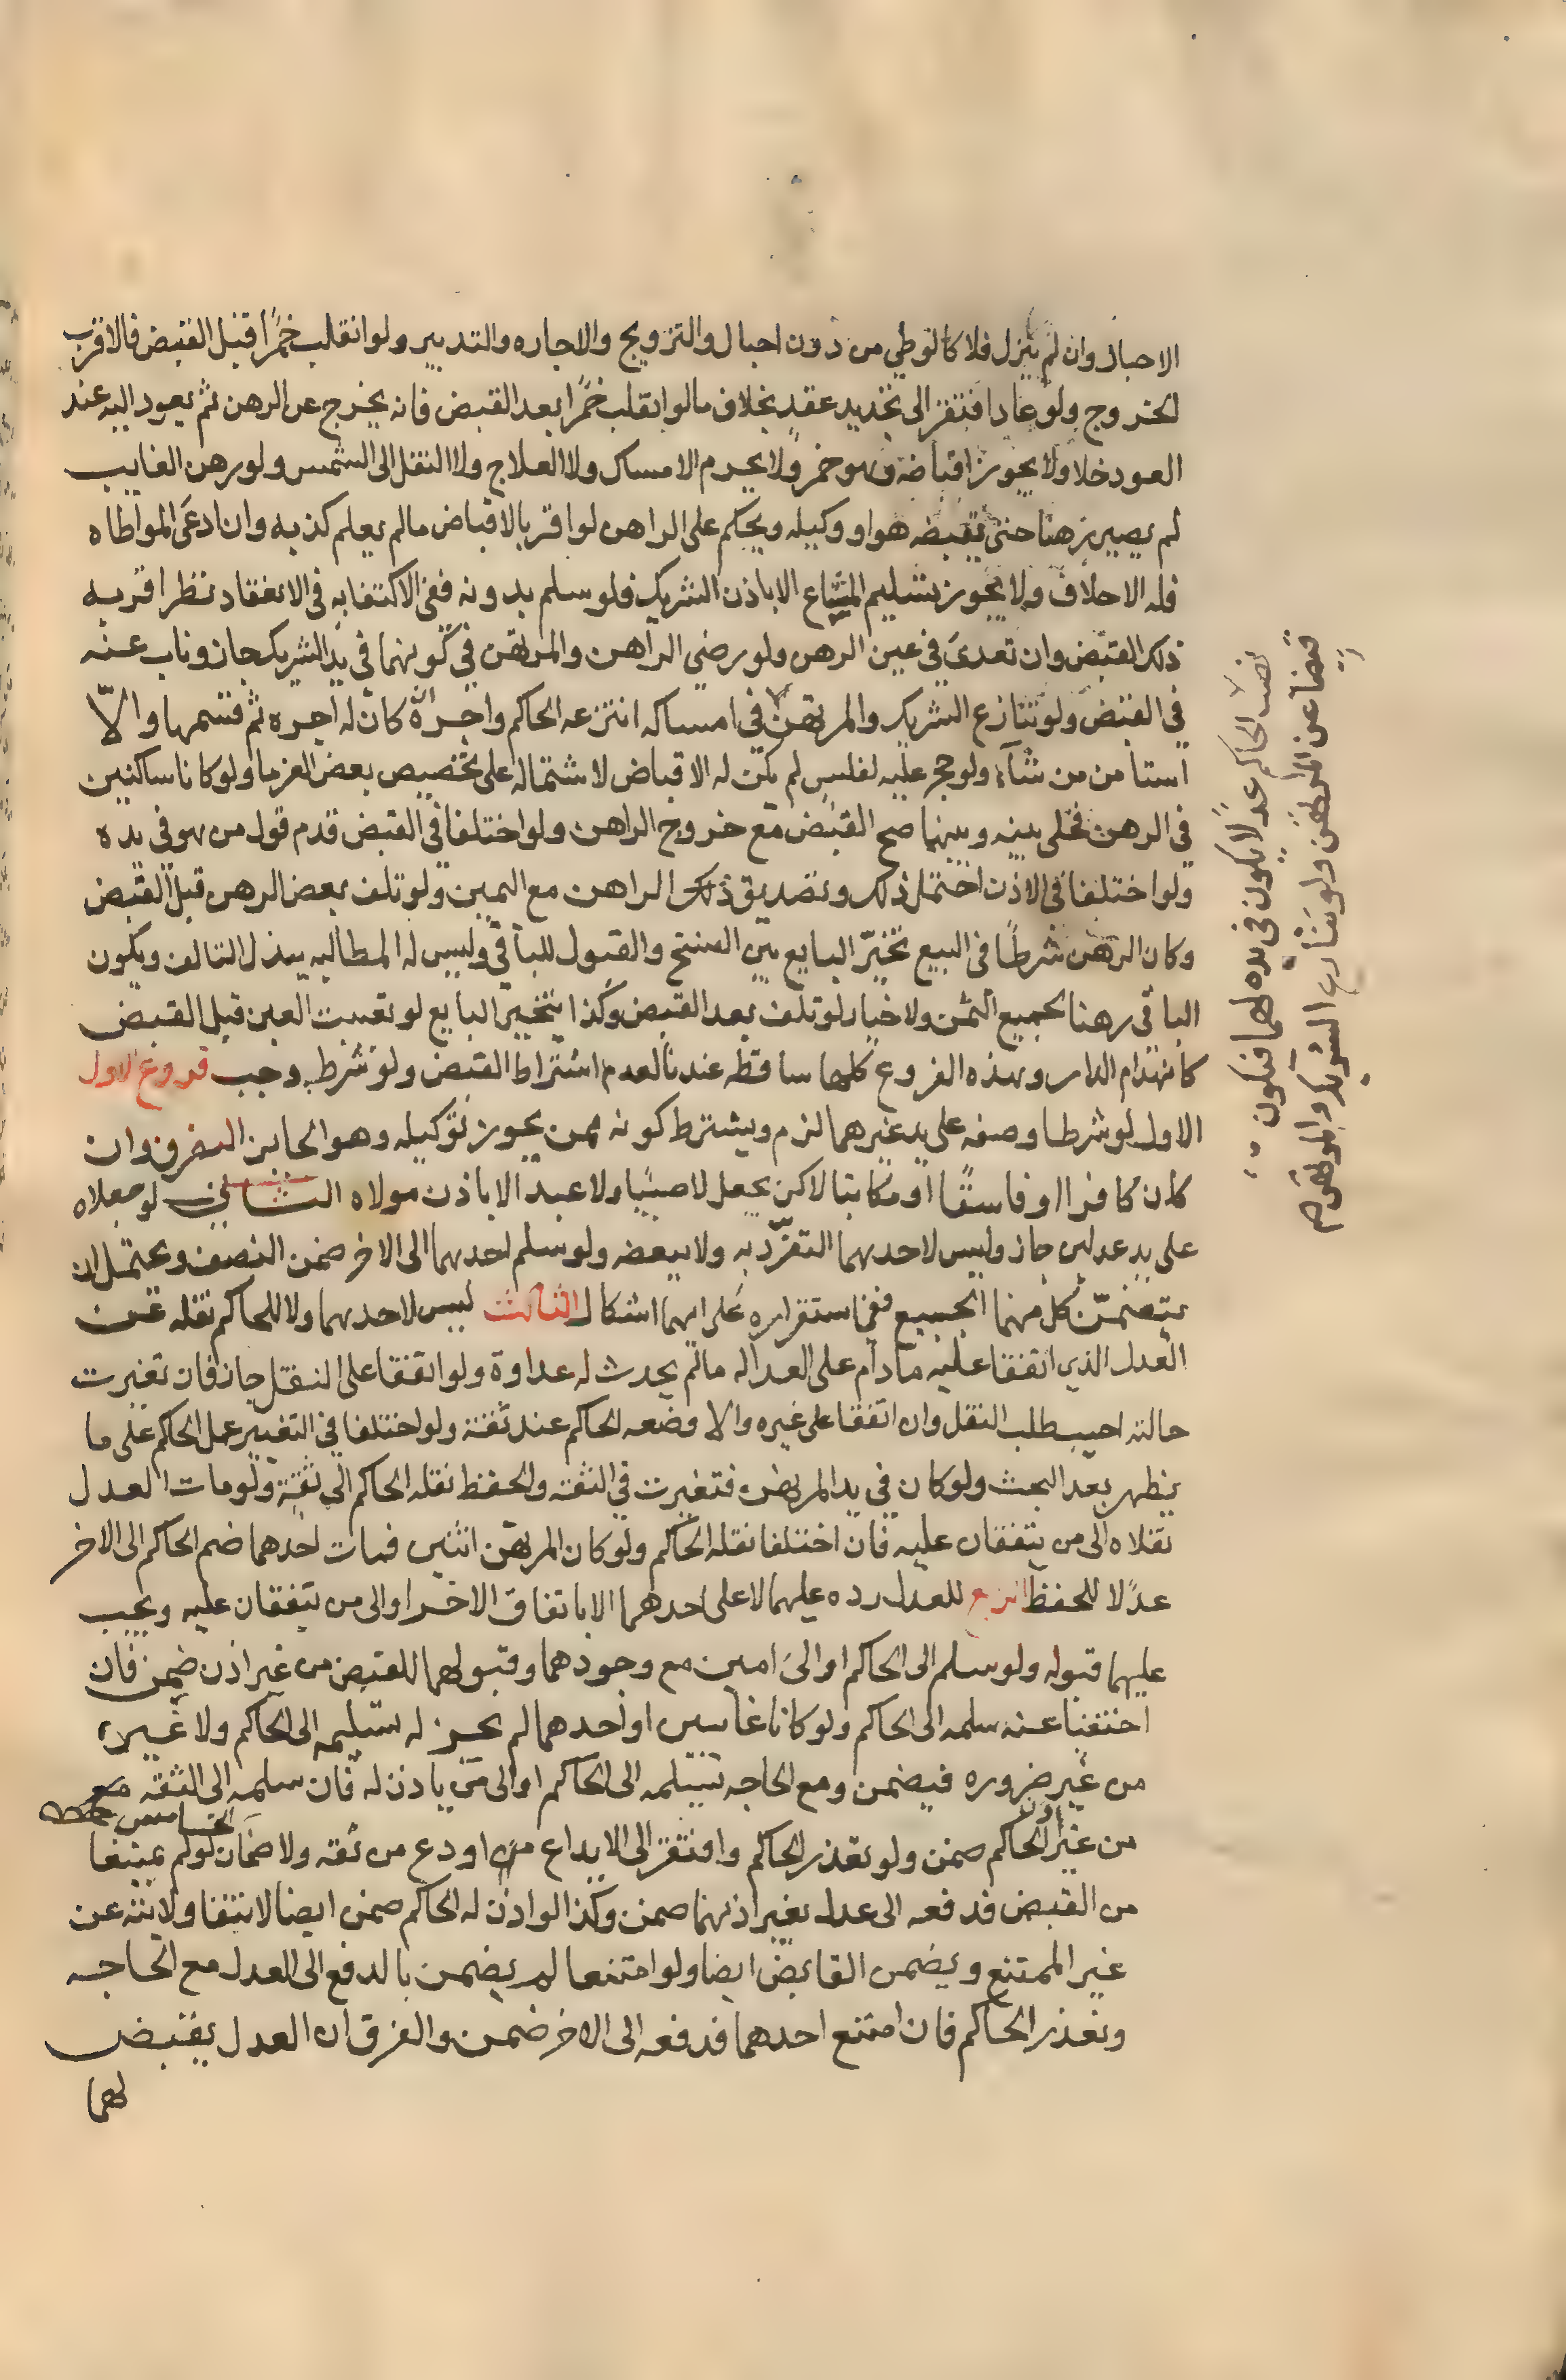 الاحبال وان لم ينزل فلا كالوطي من دون احبال والتزويج والاجاره والتدبير ولو انقلب خمرًا قبل القبض فالاقرب
الخروج ولو عاد افتقر الى تجديد عقد بخلاف ما لو انقلب خمرًا بعد القبض فانه يخرج عن الرهن ثم يعود اليه عند
العود خلا ولا يجوز اقباضه وهو خمر ولا يحرم الامساك ولا العلاج ولا النقل الى الشمس ولو رهن الغايب
لم يصير رهنا حتى يقبضه هو او وكيله ويحكم على الراهن لو اقر بالاقباض مالم يعلم كذبه وان ادعى المواطاه
فله الاحلاف ولا يجوز تسليم المشاع الا باذن الشريك فلو سلم بدونه ففي الاكتفا به في الانعقاد نظر اقربه
ذلك القبض وان تعدى في عين الرهن ولو رضي الراهن والمرتهن في كونها في يد الشريك جاز وناب عنه
في القبض ولو تنازع الشريك والمرتهن في امساكه انتزعه الحاكم واجره ان كان له اجره ثم قسمها والا
استامن من شآء ولو حجر عليه لفلس لم يكن له الاقباض لاشتماله على تخصيص بعض الغرما ولو كانا ساكنين
في الرهن فخلى بينه وبينها صح القبض مع خروج الراهن ولو اختلفا في القبض قدم قول من هو في يده
ولو اختلفا في الاذن احتمل ذلك وتصديق ذلك الراهن مع اليمين ولو تلف بعض الرهن قبل القبض
وكان الرهن شرطًا في البيع تخيّر البايع بين الفسخ والقبول للباقي وليس له المطالبه ببذل التالف ويكون
الباقي رهنا بجميع الثمن ولا خيار لو تلف بعد القبض وكذا يتخير البايع لو تعيبت العين قبل القبض
كانهدام الدار وهذه الفروع كلها ساقطه عندنا لعدم اشتراط القبض ولو شرطه وجب فروع الاول
الاول لو شرطا وضعه على يد غيرهما لزم ويشترط كونه ممن يجوز توكيله وهو الجايز التصرف وان
كان كافرا او فاسقًا او مكاتبا لاكن بجعل لا صبيًا ولا عبدا الا باذن مولاه الثاني لو جعلاه
على يد عدلين جاز وليس لاحدهما التفرّد به ولا ببعضه ولو سلم احدهما الى الاخر ضمن النصف ويحتمل ان
يتضمّن كل منهما الجميع ففي استقراره على ايهما اشكال الثالث ليس لاحدهما ولا للحاكم نقله عن
العدل الذي اتفقا عليه ما دام على العداله مالم يحدث له عداوة ولو اتفقا على النقل جاز فان تغيرت
حالته اجيب طلب النقل وان اتفقا على غيره والا وضعه الحاكم عند ثقة ولو اختلفا في التغيير عمل الحاكم على ما
يظهر بعد البحث ولو كان في يد المرتهن فتغيرت في الثقه والحفظ نقله الحاكم الى ثقة ولو مات العدل
نقلاه الى من يتفقان عليه فان اختلفا نقله الحاكم ولو كان المرتهن اثنين فمات احدهما ضم الحاكم الى الاخر
عدلا للحفظ الرابع للعدل رده عليهما لا على احدهما الا باتفاق الاخر او الى من يتفقان عليه ويجب
عليهما قبوله ولو سلم الى الحاكم او الى امين مع وجودهما وقبولهما للقبض من غير اذن ضمن فان
اختفيا عنه سلمه الى الحاكم ولو كانا غايبين او احدهما لم يجز له تسليمه الى الحاكم ولا غيره
من غير ضروره فيضمن ومع الحاجه تسلمه الى الحاكم او الى من ياذن له فان سلمه الى الثقه مع
من غير اذن الحاكم ضمن ولو تعذر الحاكم وافتقر الى الايداع اودع من ثقه ولا ضمان الخامس لو لم يمتنعا
من القبض فدفعه الى عدل بغير اذنهما ضمن وكذا لو اذن له الحاكم ضمن ايضا لانتفا ولايته عن
غير الممتنع ويضمن القابض ايضا ولو امتنعا لم يضمن بالدفع الى العدل مع الحاجه
وتعذر الحاكم فان امتنع احدهما فدفعه الى الاخر ضمن والفرق ان العدل يقبض
لهما
نصب الحاكم عدلا يكون في يده لهما فيكون
قبضا عن المرتهن ولو تنازع الشريك والمرتهن صح